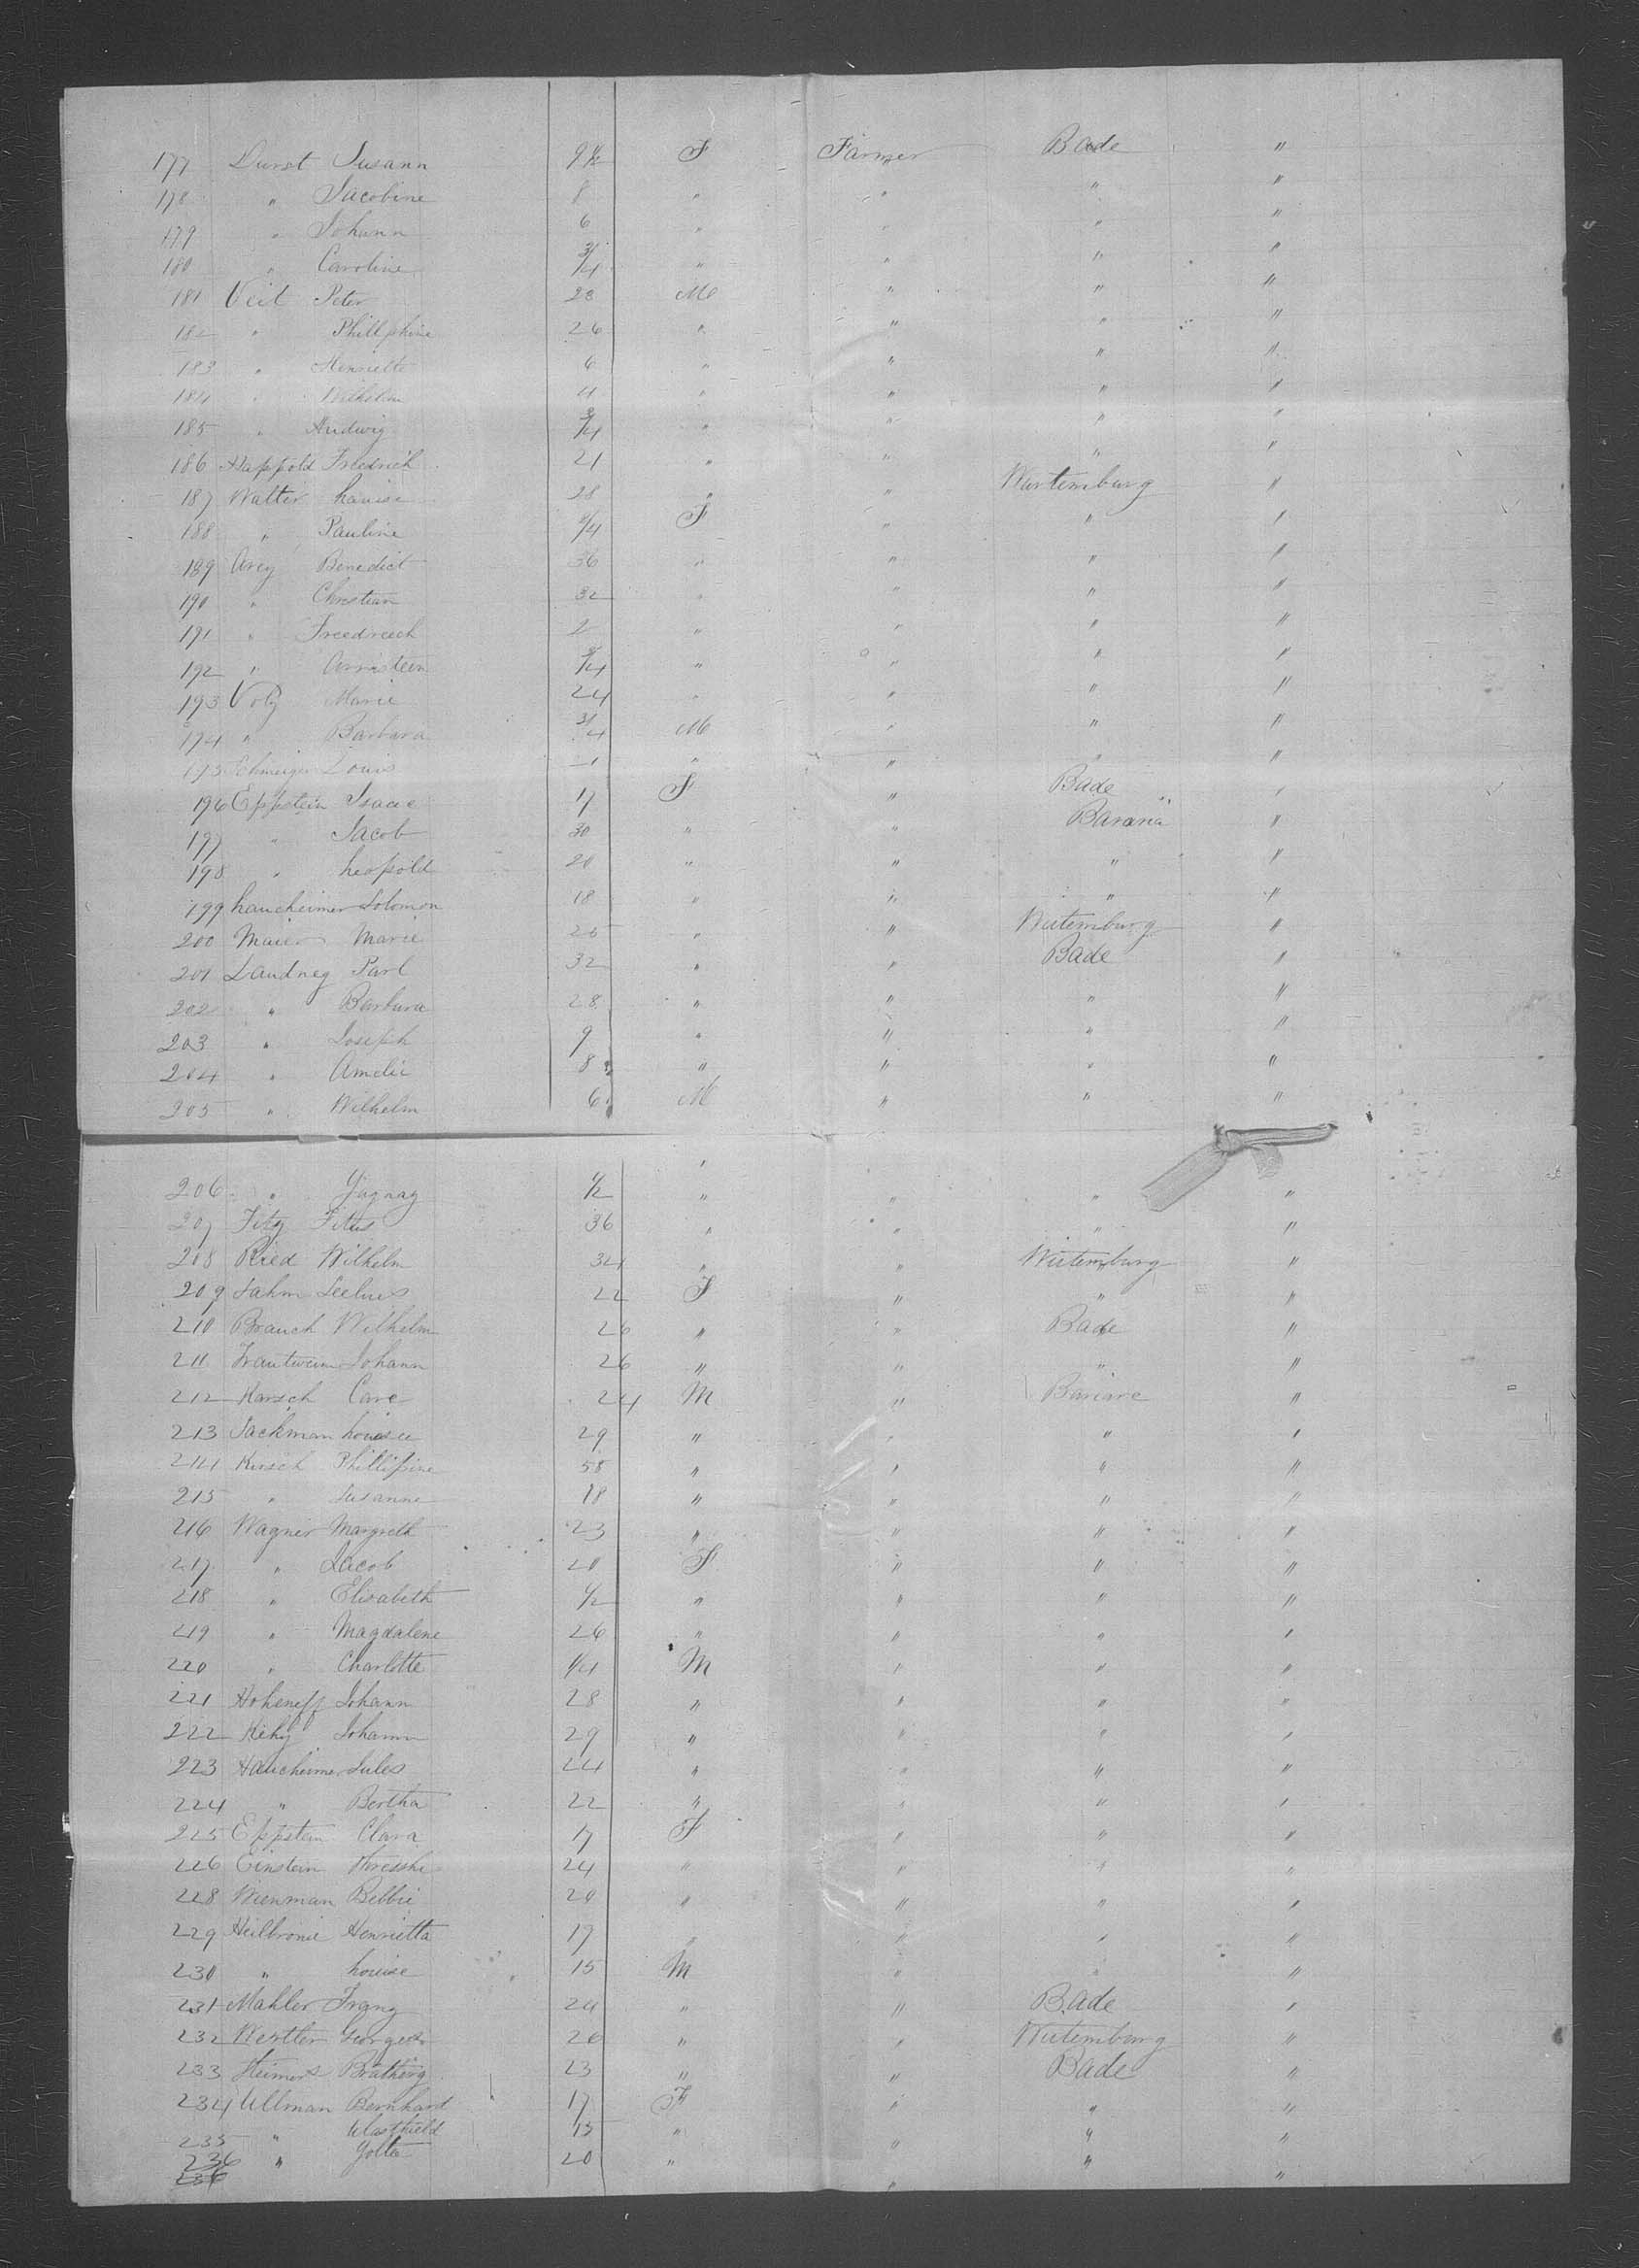 177 Durst Susann 9 1/2 F Farmer Bade "
178 " Jacobine 8 " " " "
179 " Johann 6 " " " "
180 " Caroline 3/4 " " " "
181 Veit Peter 28 M " " "
182 " Phillphine 26 " " " "
183 " Henriette 6 " " " "
184 " Wilhelm 4 " " " "
185 " Ludwig 3/4 " " " "
186 Happold Friedrich 21 " " " "
187 Walter Louise 28 " " Wurtemburg "
188 " Pauline 3/4 F " " "
189 Arey Benedict 36 " " " "
190 " Christian 32 " " " "
191 " Freedreech 2 " " " "
192 " 3/4 " " " "
193 Volz Marie 24 " " " "
194 " Barbara 3/4 M " " "
195 Louis " " " "
196 Eppstein Isaac 17 F " Bade "
197 " Jacob 30 " " Bavaria "
198 " Leopold 20 " " " "
199 Laucheimer Solomon 18 " " " "
200 Maier Marie 25 " " Wutemburg "
201 Landneg Parl 32 " " Bade "
202 " Barbara 28 " " " "
203 " Joseph 9 " " " "
204 " Amelie 8 " " " "
205 " Wilhelm 6 M " " "
206 " 1/2 " " " "
207 Fitz Titus 36 " " " "
208 Ried Wilhelm 34 " " Wutemburg "
209 Sahm 22 F " " "
210 Brauch Wilhelm 26 " " Bade "
211 Trautwein Johann 26 " " " "
212 Karsch Care 24 M " Bariare "
213 Sackman Louise 29 " " " "
214 Kirsch Phillipine 58 " " " "
215 " Susanne 18 " " " "
216 Wagner Margreth 23 " " " "
217 " Jacob 20 F " " "
218 " Elisabeth 1/2 " " " "
219 " Magdalene 26 " " " "
220 " Charlotte 1/4 M " " "
221 Hoheneff Johann 28 " " " "
222 Kehy Johann 29 " " " "
223 Haucheimer Jules 24 " " " "
224 " Bertha 22 " " " "
225 Eppstein Clara 17 F " " "
226 Einstein 24 " " " "
228 Wienman Bebbie 20 " " " "
229 Heilbronie Henrietta 17 " " " "
230 " Louise 15 M " " "
231 Mahler Franz 24 " " Bade "
232 Wertler Georges 26 " " Wutemburg "
233 Steimers 23 " " Bade "
234 Ullman Bernhard 17 F " " "
235 " 15 " " " "
236 " Yolta 20 " " " "
236